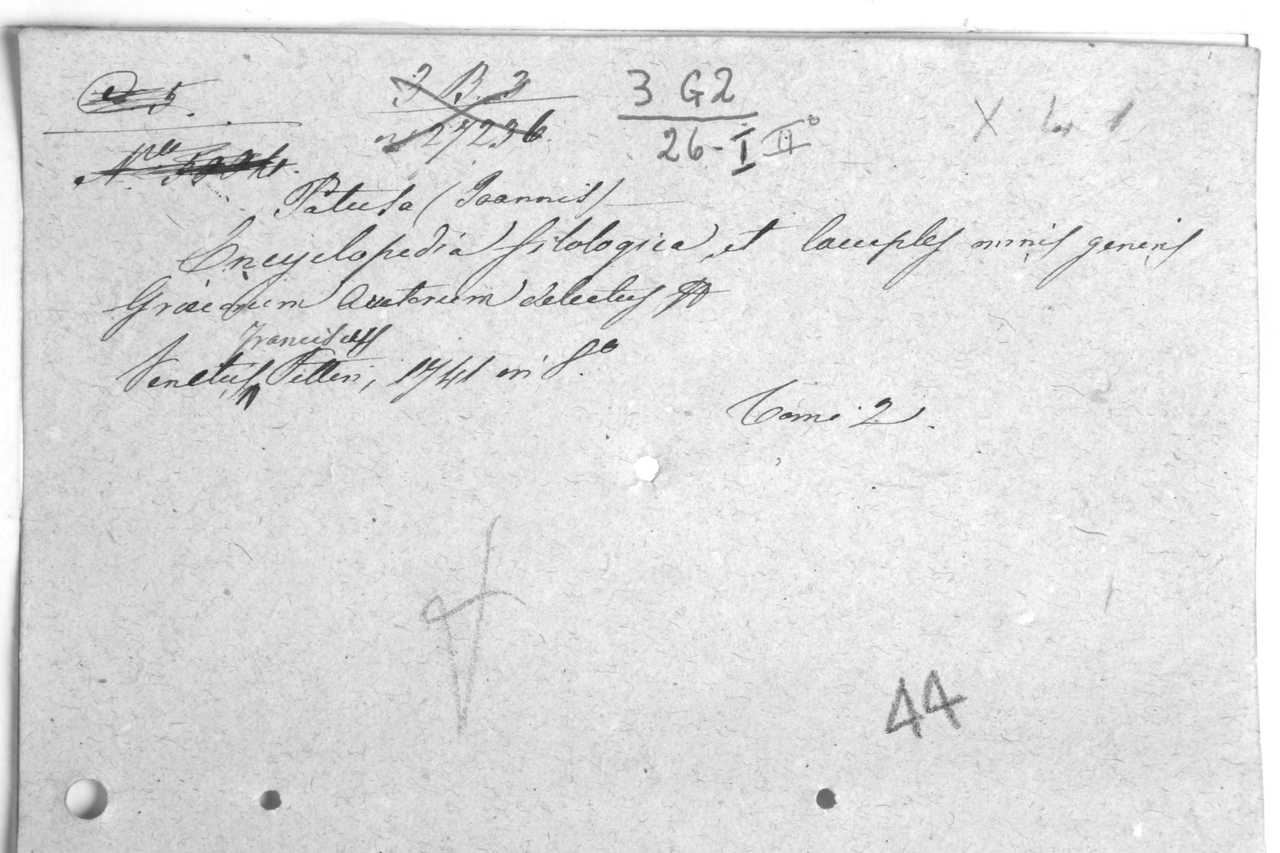 5.
3 B. 3
nº 27236
3 G2
26-I IIº
Patusa (Joannis)
Encyclopedia filologica, et locuples omnis generis
Græcorum Auctorum delectus
Franciscus
Venetiis Pitteri, 1741 in 8.º
Tome 2.
44